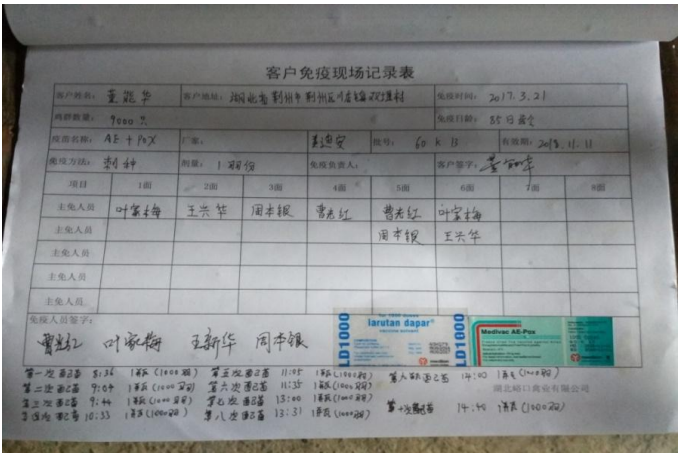 客户免疫现场记录表
客户姓名： 董能华 客户地址：湖北省荆州市荆州区川店镇双堰村 免疫时间：2017.3.21
鸡群数量： 9000 免疫日龄： 85日龄
疫苗名称： AE+POX 厂家： 美迪安 批号： 60KB 有效期：2018.11.11
免疫方法： 刺种 剂量： 1羽份 免疫负责人： 客户签字：
项目 1面 2面 3面 4面 5面 6面 7面 8面
主免人员 叶家梅 王兴华 周本银 曹老红 曹老红 叶家梅
主免人员 周本银 王兴华
主免人员
主免人员
主免人员
免疫人员签字：
叶家梅 王新华 周本银
LD1000 larutan dapar LD1000
Medivac AE-Pox
第一次配苗 8:36 1瓶(1000羽) 第五次配苗 11:05 1瓶(1000羽) 第九次配苗 14:00 1瓶(1000羽)
第二次配苗 9:04 1瓶(1000羽) 第六次配苗 11:35 1瓶(1000羽) 湖北峪口禽业有限公司
第三次配苗 9:44 1瓶(1000羽) 第七次配苗 13:00 1瓶(1000羽)
第四次配苗 10:33 1瓶(1000羽) 第八次配苗 13:31 1瓶(1000羽) 第十次配苗 14:40 1瓶(1000羽)